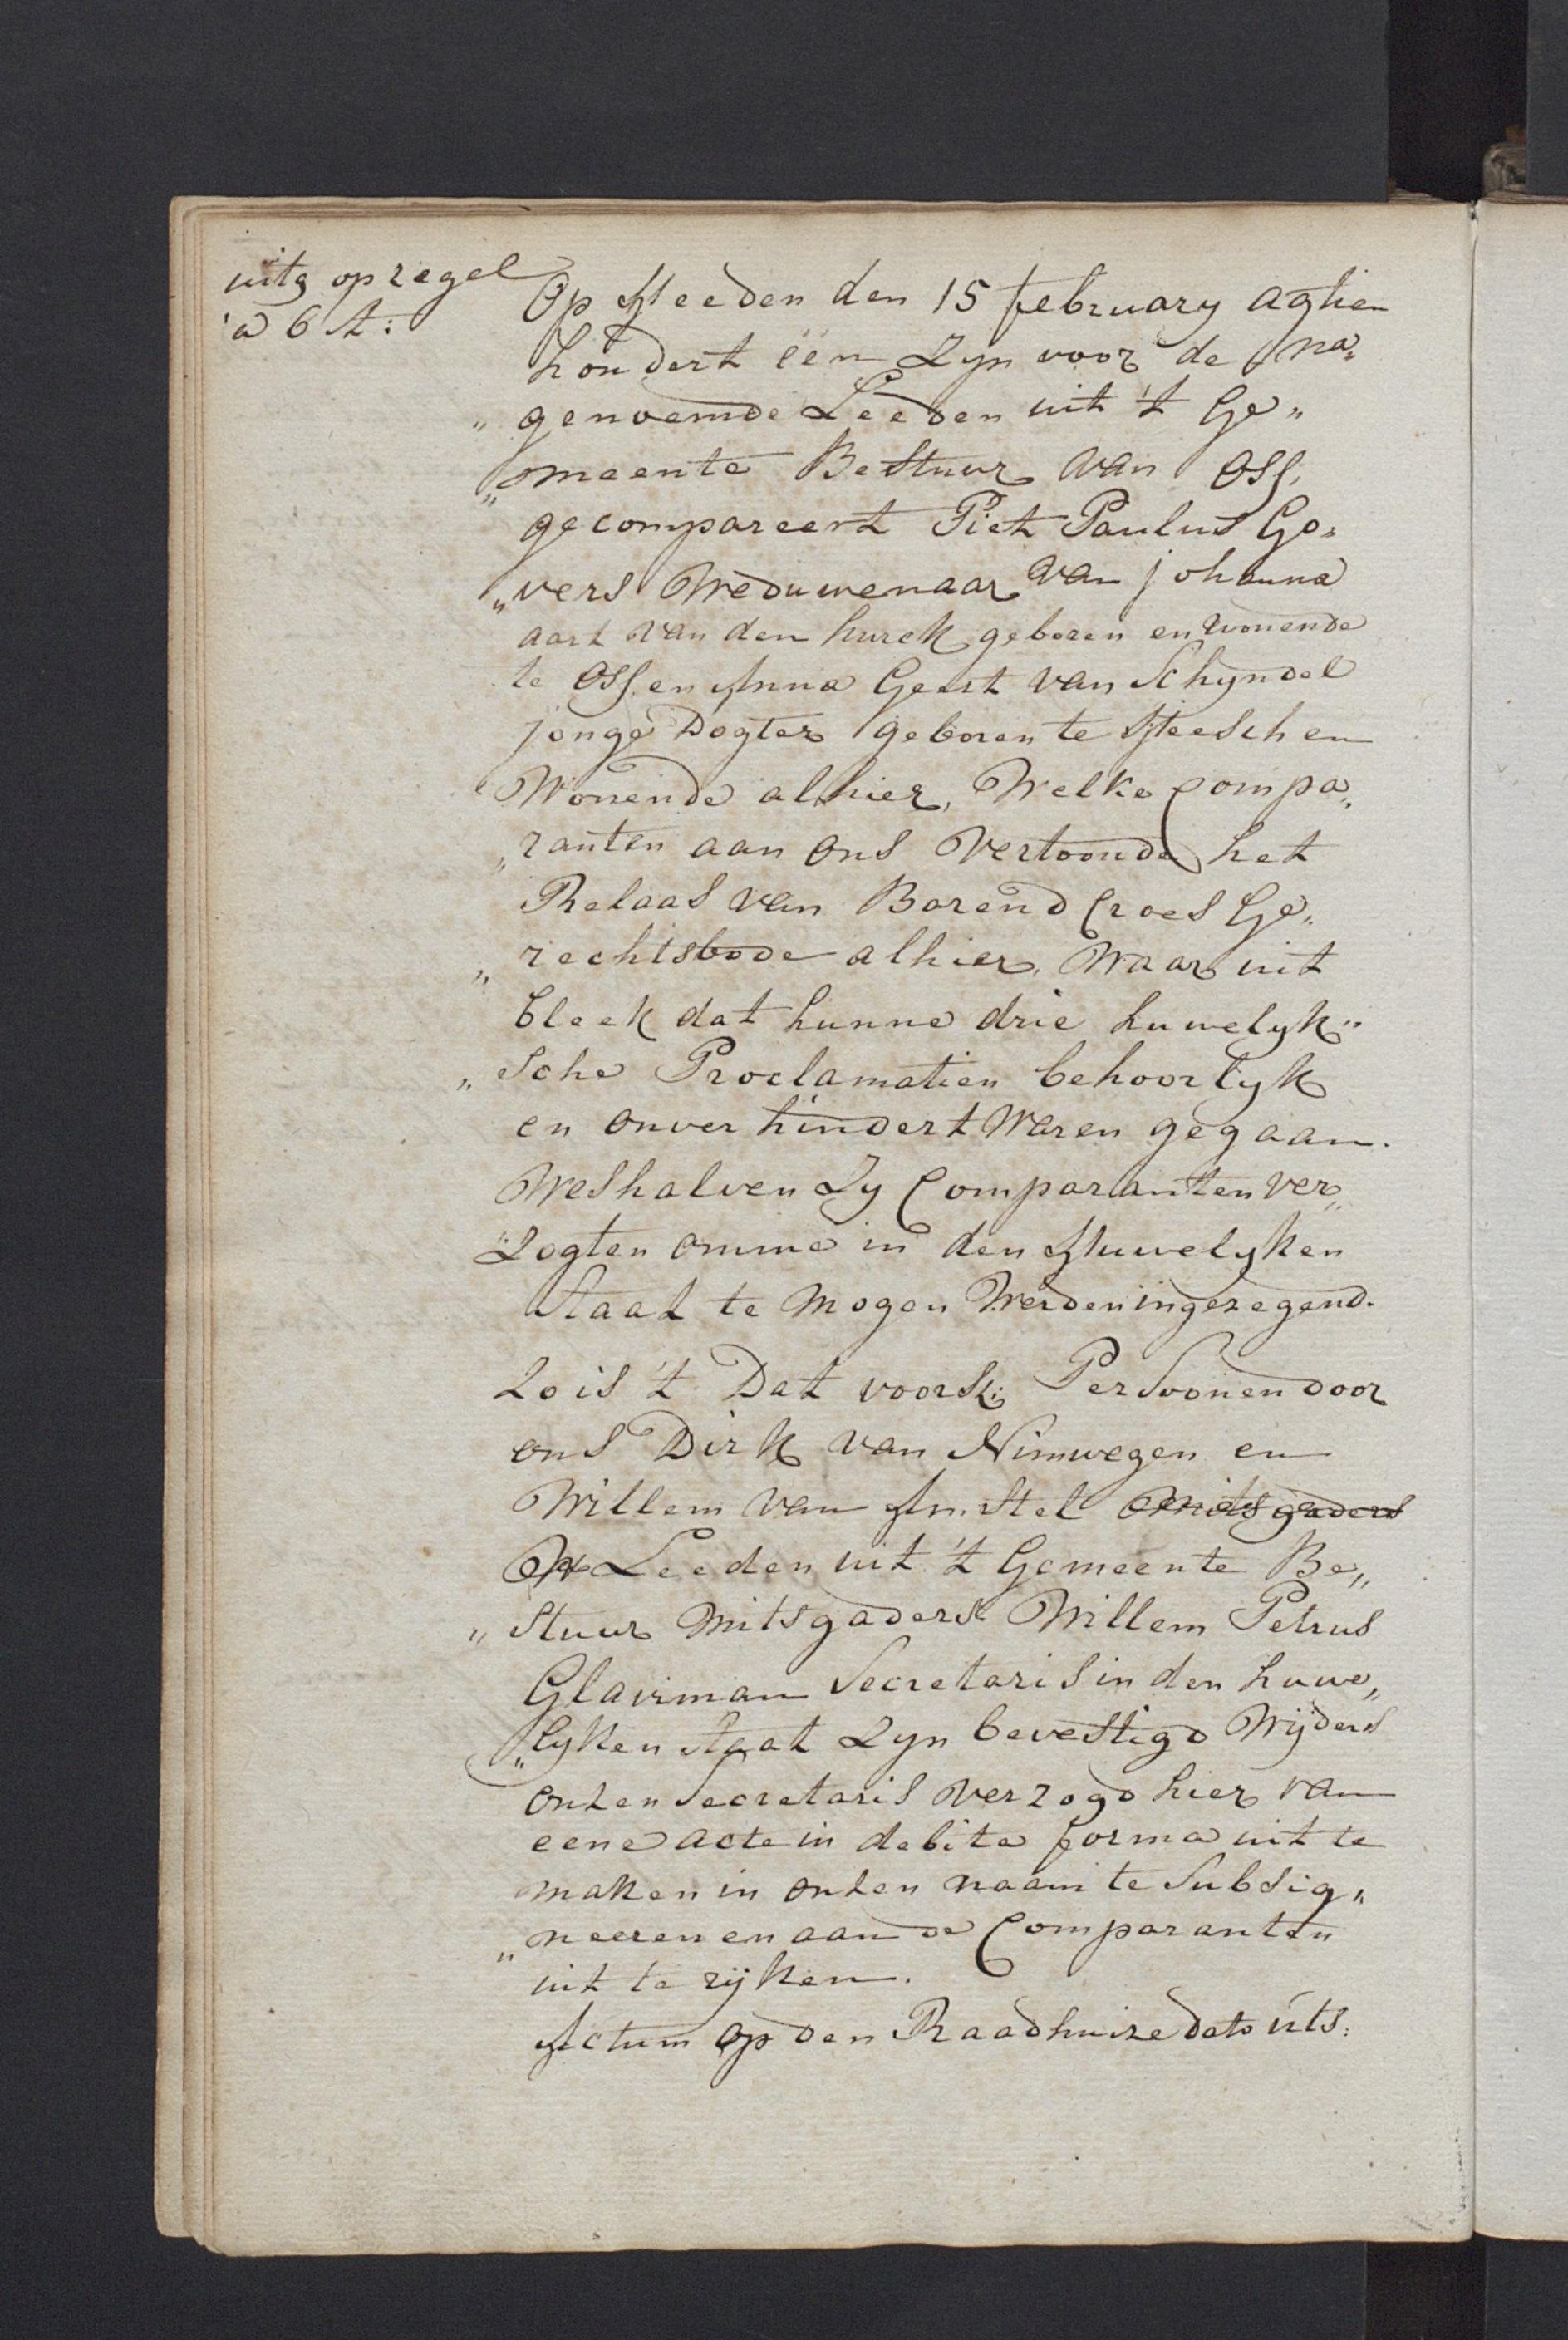 uitg op zegel
a 6 st:
Op Heeden den 15 february agtien
hondert een Zyn voor de na„
„genoemde Leeden uit 't Ge„
„meente Bestuur van Oss,
gecompareert Piet Paulus Go„
„vers Weduwenaar van johanna
aart van den hurck geboren en wonende
te Oss, en Anna Geert van Schyndel
jonge Dogter geboren te Heesch en
Wonende alhier, Welke Compa„
„ranten aan ons Vertoonde het
Relaas van Barend Croes Ge„
„rechtsbode alhier, Waar uit
bleek dat hunne drie huwelyk„
„sche Proclamatien behoorlyk
en onverhindert Waren gegaan.
Weshalven Zy Comparanten ver„
„zogten omme in den Huwelyken
Staat te mogen Werden ingezegend.
Zo is 't Dat voorsz: Persoonen door
ons Dirk van Nimwegen en
Willem van Amstel Mitsgaders
Leeden uit 't Gemeente Be„
„stuur Mitsgaders Willem Petrus
Glavimans Secretaris in den huwe„
„lyken Staat Zyn bevestigd Wijders
onzen Secretaris verzogd hier van
eene acte in debita forma uit te
maken in onzen naam te Subsig„
„neeren en aan de Comparanten
uit te rijken.
Actum op den Raadhuize dato uts: